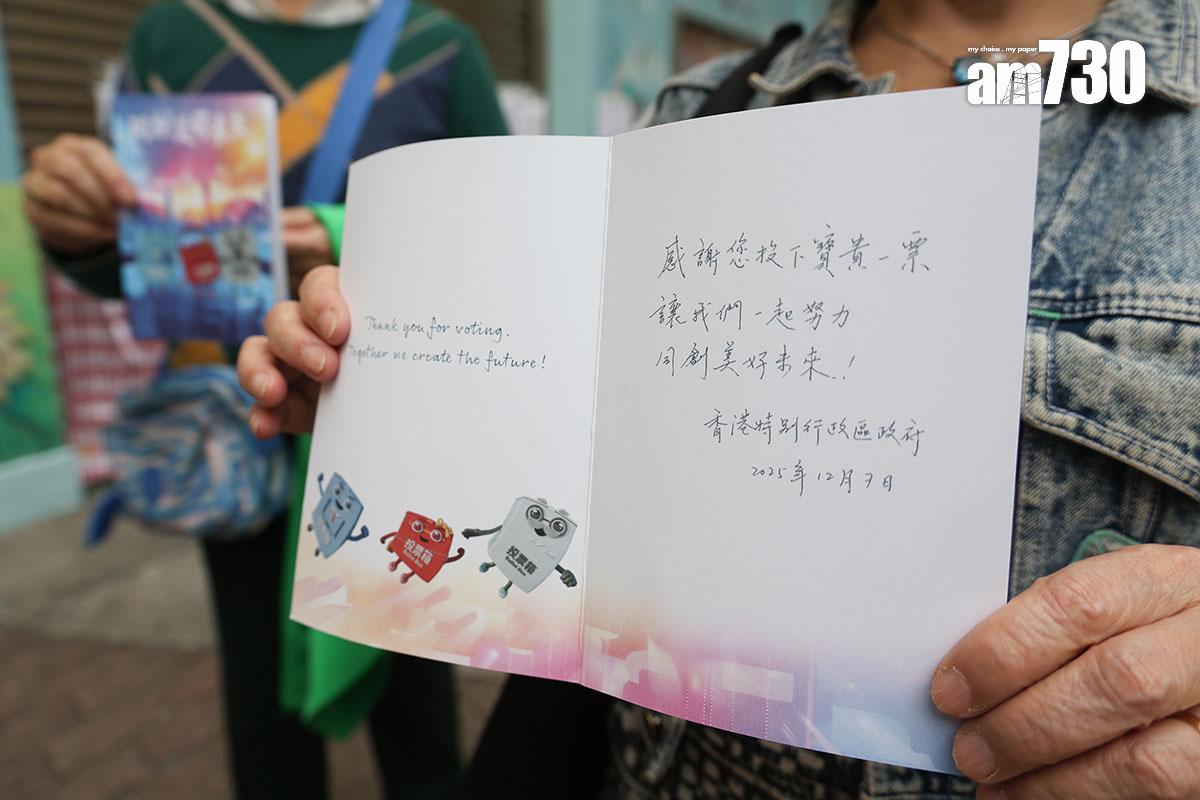 my choice . my paper
am730
Thank you for voting.
Together we create the future!
感謝您投下寶貴一票
讓我們一起努力
同創美好未來！
香港特別行政區政府
2025年12月7日
投票箱
Ballot Box
投票箱
Ballot Box